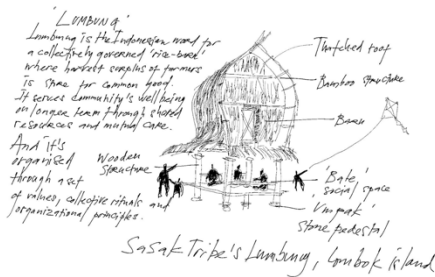 'LUMBUNG'
Lumbung is the Indonesian word for
a collectively governed 'rice-barn'
where harvest surplus of farmers
is store for common good.
It serves community's well being
on longer term through shared
resources and mutual care.
And it's
organised
through a set
of values, collective rituals and
organizational principles.
Wooden
structure
Thatched roof
Bamboo structure
Barn
'Bale'
social space
'Umpak'
stone pedestal
Sasak Tribe's Lumbung, Lombok island